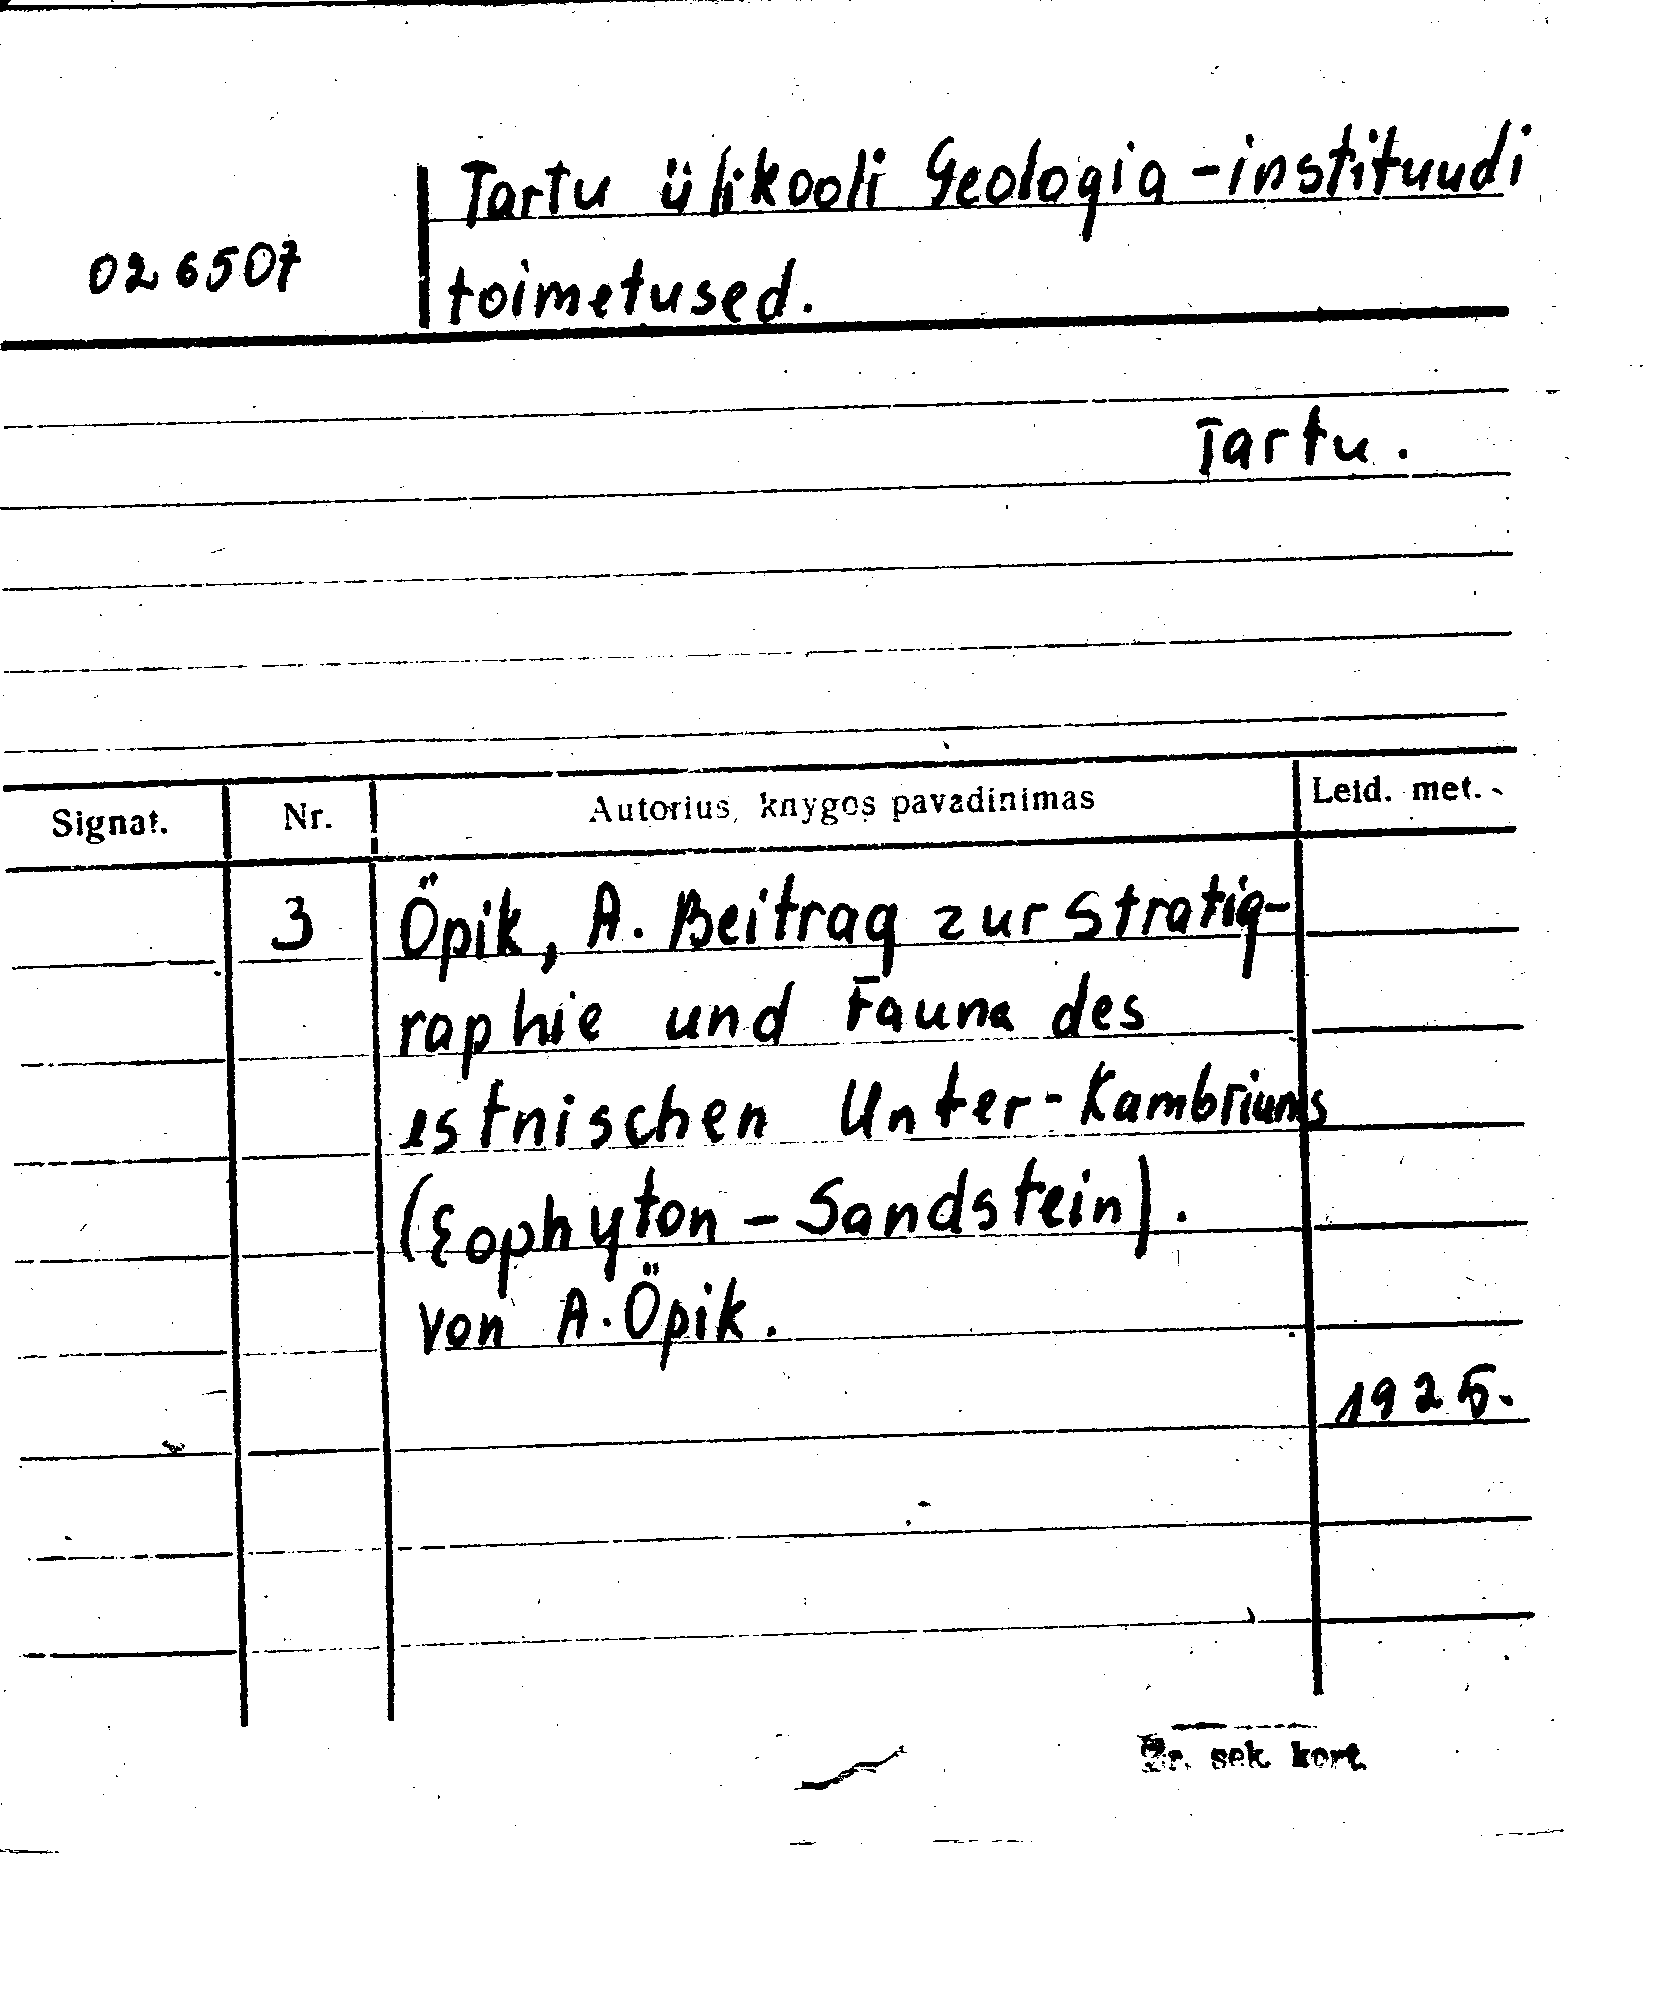 Tartu ülikooli Geologia-instituudi
026507
toimetused.
Tartu.
Signat. Nr. Autorius, knygos pavadinimas Leid. met.
3 Öpik, A. Beitrag zur Stratig-
raphie und Fauna des
estnischen Unter-Kambriums
(Eophyton-Sandstein).
von A. Öpik.
1925.
Žr. sek. kort.